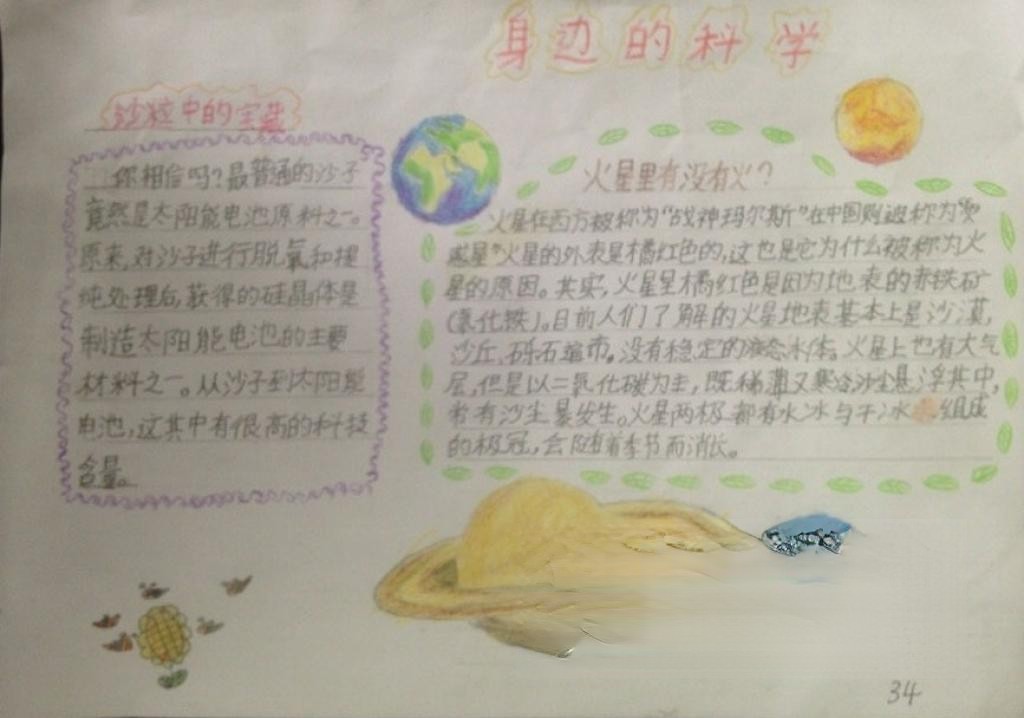 身边的科学
沙粒中的宝藏
你相信吗?最普通的沙子
竟然是太阳能电池原料之一。
原来,对沙子进行脱氧和提
纯处理后,获得的硅晶体是
制造太阳能电池的主要
材料之一。从沙子到太阳能
电池,这其中有很高的科技
含量。
火星里有没有火?
火星在西方被称为“战神玛尔斯”在中国则被称为“荧
惑星”火星的外表是橘红色的,这也是它为什么被称为火
星的原因。其实,火星呈橘红色是因为地表的赤铁矿
(氧化铁)。目前人们了解的火星地表基本上是沙漠,
沙丘、砾石遍布。没有稳定的液态水体。火星上也有大气
层,但是以二氧化碳为主,既稀薄又寒冷沙尘悬浮其中,
常有沙尘暴发生。火星两极都有水冰与干冰组成
的极冠,会随着季节而消长。
34